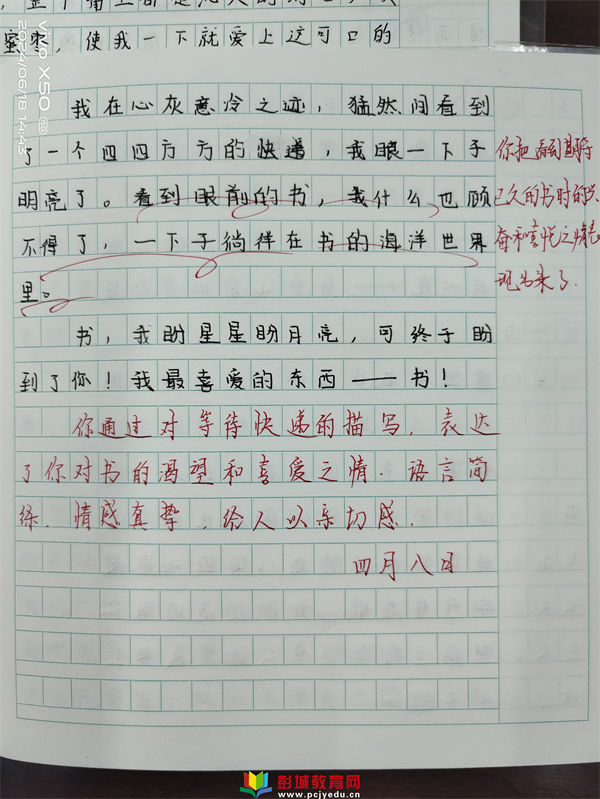 蜜枣，使我一下就爱上这可口的
vivo X50
2024/06/18 14:43
我在心灰意冷之迹，猛然间看到
了一个四四方方的快递，我眼一下子
明亮了。看到眼前的书，我什么也顾
不得了，一下子徜徉在书的海洋世界
里。
你把看到期待
已久的书时的兴
奋和喜悦之情表
现出来了.
书，我盼星星盼月亮，可终于盼
到了你！我最喜爱的东西——书！
你通过对等待快递的描写，表达
了你对书的渴望和喜爱之情．语言简
练．情感真挚，给人以亲切感．
四月八日
彭城教育网
www.pcjyedu.cn